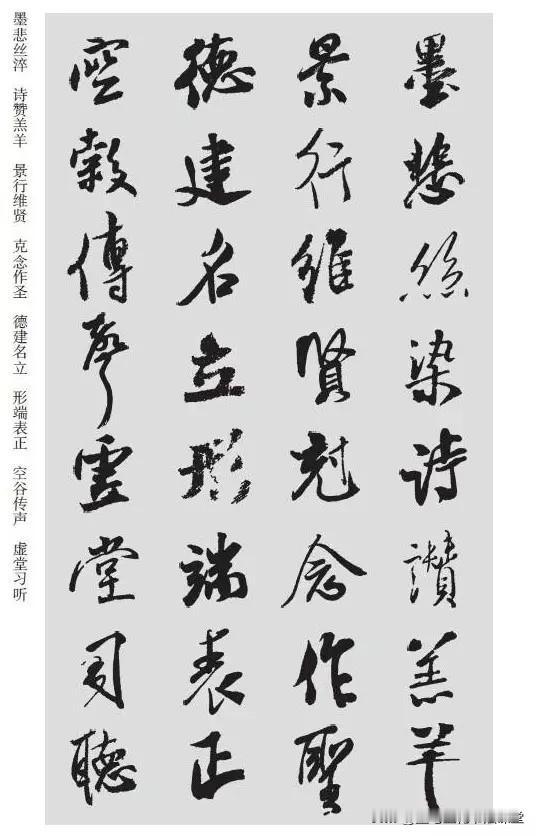 墨悲絲染詩讚羔羊
景行維賢尅念作聖
德建名立形端表正
空穀傳聲虛堂習聽
墨悲丝淬 诗赞羔羊 景行维贤 克念作圣 德建名立 形端表正 空谷传声 虚堂习听